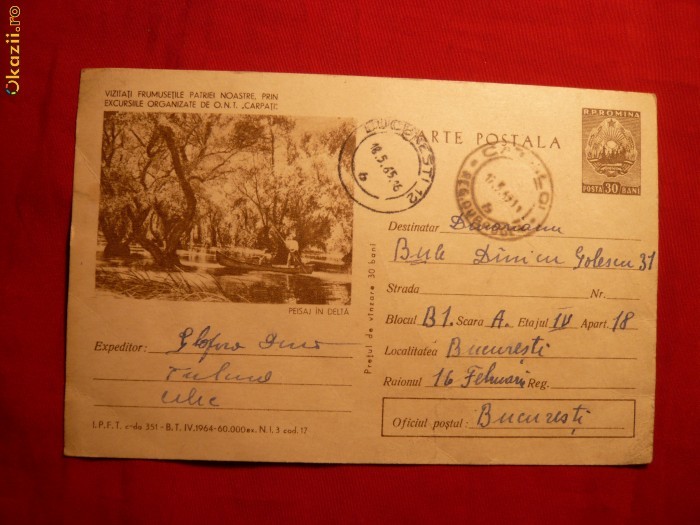 Okazii.ro
VIZITAȚI FRUMUSEȚILE PATRIEI NOASTRE, PRIN
EXCURSIILE ORGANIZATE DE O.N.T. „CARPAȚI”
PEISAJ ÎN DELTĂ
Expeditor:
I.P.F.T. c-da 351-B.T. IV.1964-60.000 ex. N.I. 3 cod. 17
Prețul de vînzare 30 bani
BUCUREȘTI 12
18.5.65.16
CARTE POȘTALĂ
R.P. ROMINA
POSTA 30 BANI
Destinatar
Bule Dinicu Golescu 31
Strada Nr.
Blocul B1. Scara A. Etajul IV Apart. 18
Localitatea București
Raionul 16 Februarie Reg.
Oficiul poștal: București